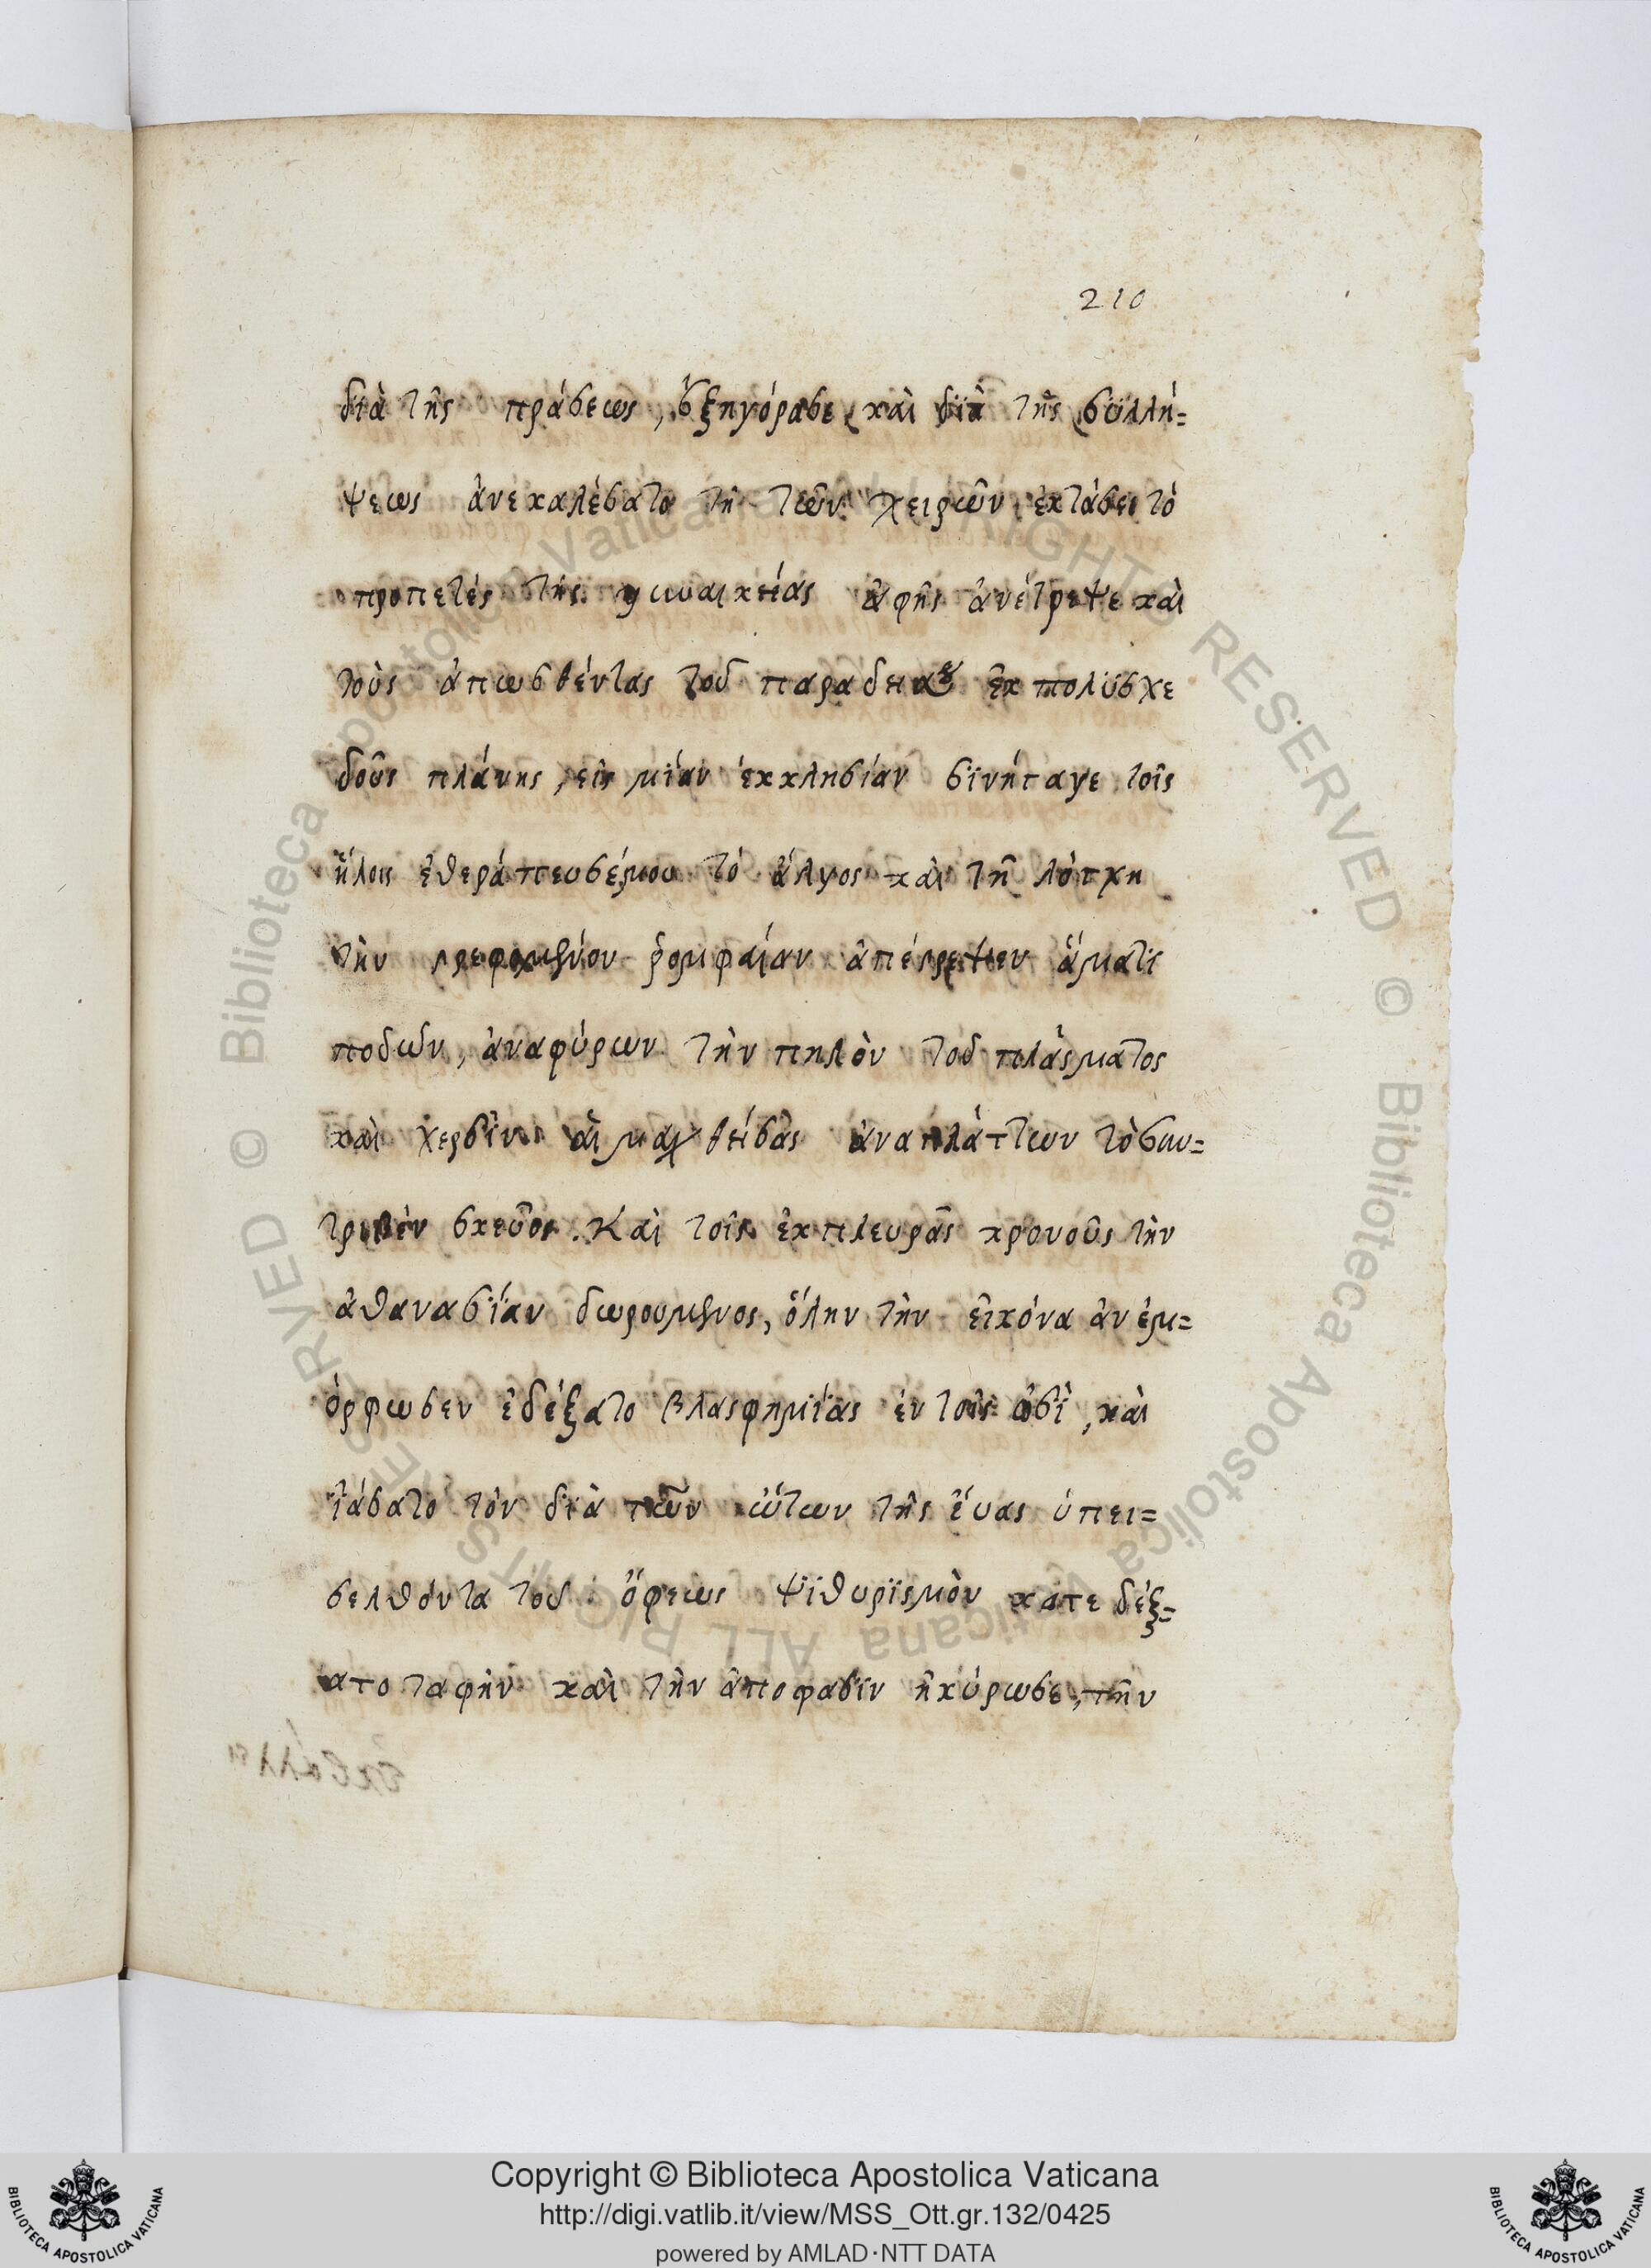 210
διὰ τῆς πράσεως, ἐξηγόρασε καὶ διὰ τῆς συλλή=
ψεως ἀνεκαλέσατο τῆ τῶν χειρῶν ἐκτάσει τὸ
προπετὲς τῆς γυναικείας ἁφῆς ἀνέτρεψε καὶ
τοὺς ἀπωσθέντας τοῦ παραδείσου ἐκ πολυσχε
δοῦς πλάνης, εἰς μίαν ἐκκλησίαν σινήταγε τοῖς
ἥλοις ἐθεράπευσέμου τὸ ἄλγος καὶ τῆ λότχη
τὴν ῥομφαίαν ἀπέστρεψεν αἵματι
ποδῶν, ἀναφύρων τὴν πηλὸν τοῦ πλάσματος
καὶ χερσὶν αἱμαχθείσας ἀναπλάττων τὸ συν=
τριβὲν σκεῦος. Καὶ τοῖς ἐκπλευρᾶς κρουνοῦς τὴν
ἀθανασίαν δωρούμενος, ὅλην τὴν εἰκόνα ἀνέμ=
όρφωσεν ἐδέξατο βλασφημίας ἐν τοῖς ὠσὶ, καὶ
ἰάσατο τὸν διὰ τῶν ὤτων τῆς ἔυας ὑπει=
σελθόντα τοῦ ὄφεως ψιθυρισμὸν κατεδέξ=
ατο ταφὴν καὶ τὴν ἀποφασιν ἠκύρωσε, τὴν
Copyright © Biblioteca Apostolica Vaticana
http://digi.vatlib.it/view/MSS_Ott.gr.132/0425
powered by AMLAD·NTT DATA
BIBLIOTECA APOSTOLICA VATICANA
BIBLIOTECA APOSTOLICA VATICANA
© Biblioteca Apostolica Vaticana ALL RIGHTS RESERVED © Biblioteca Apostolica Vaticana ALL RIGHTS RESERVED